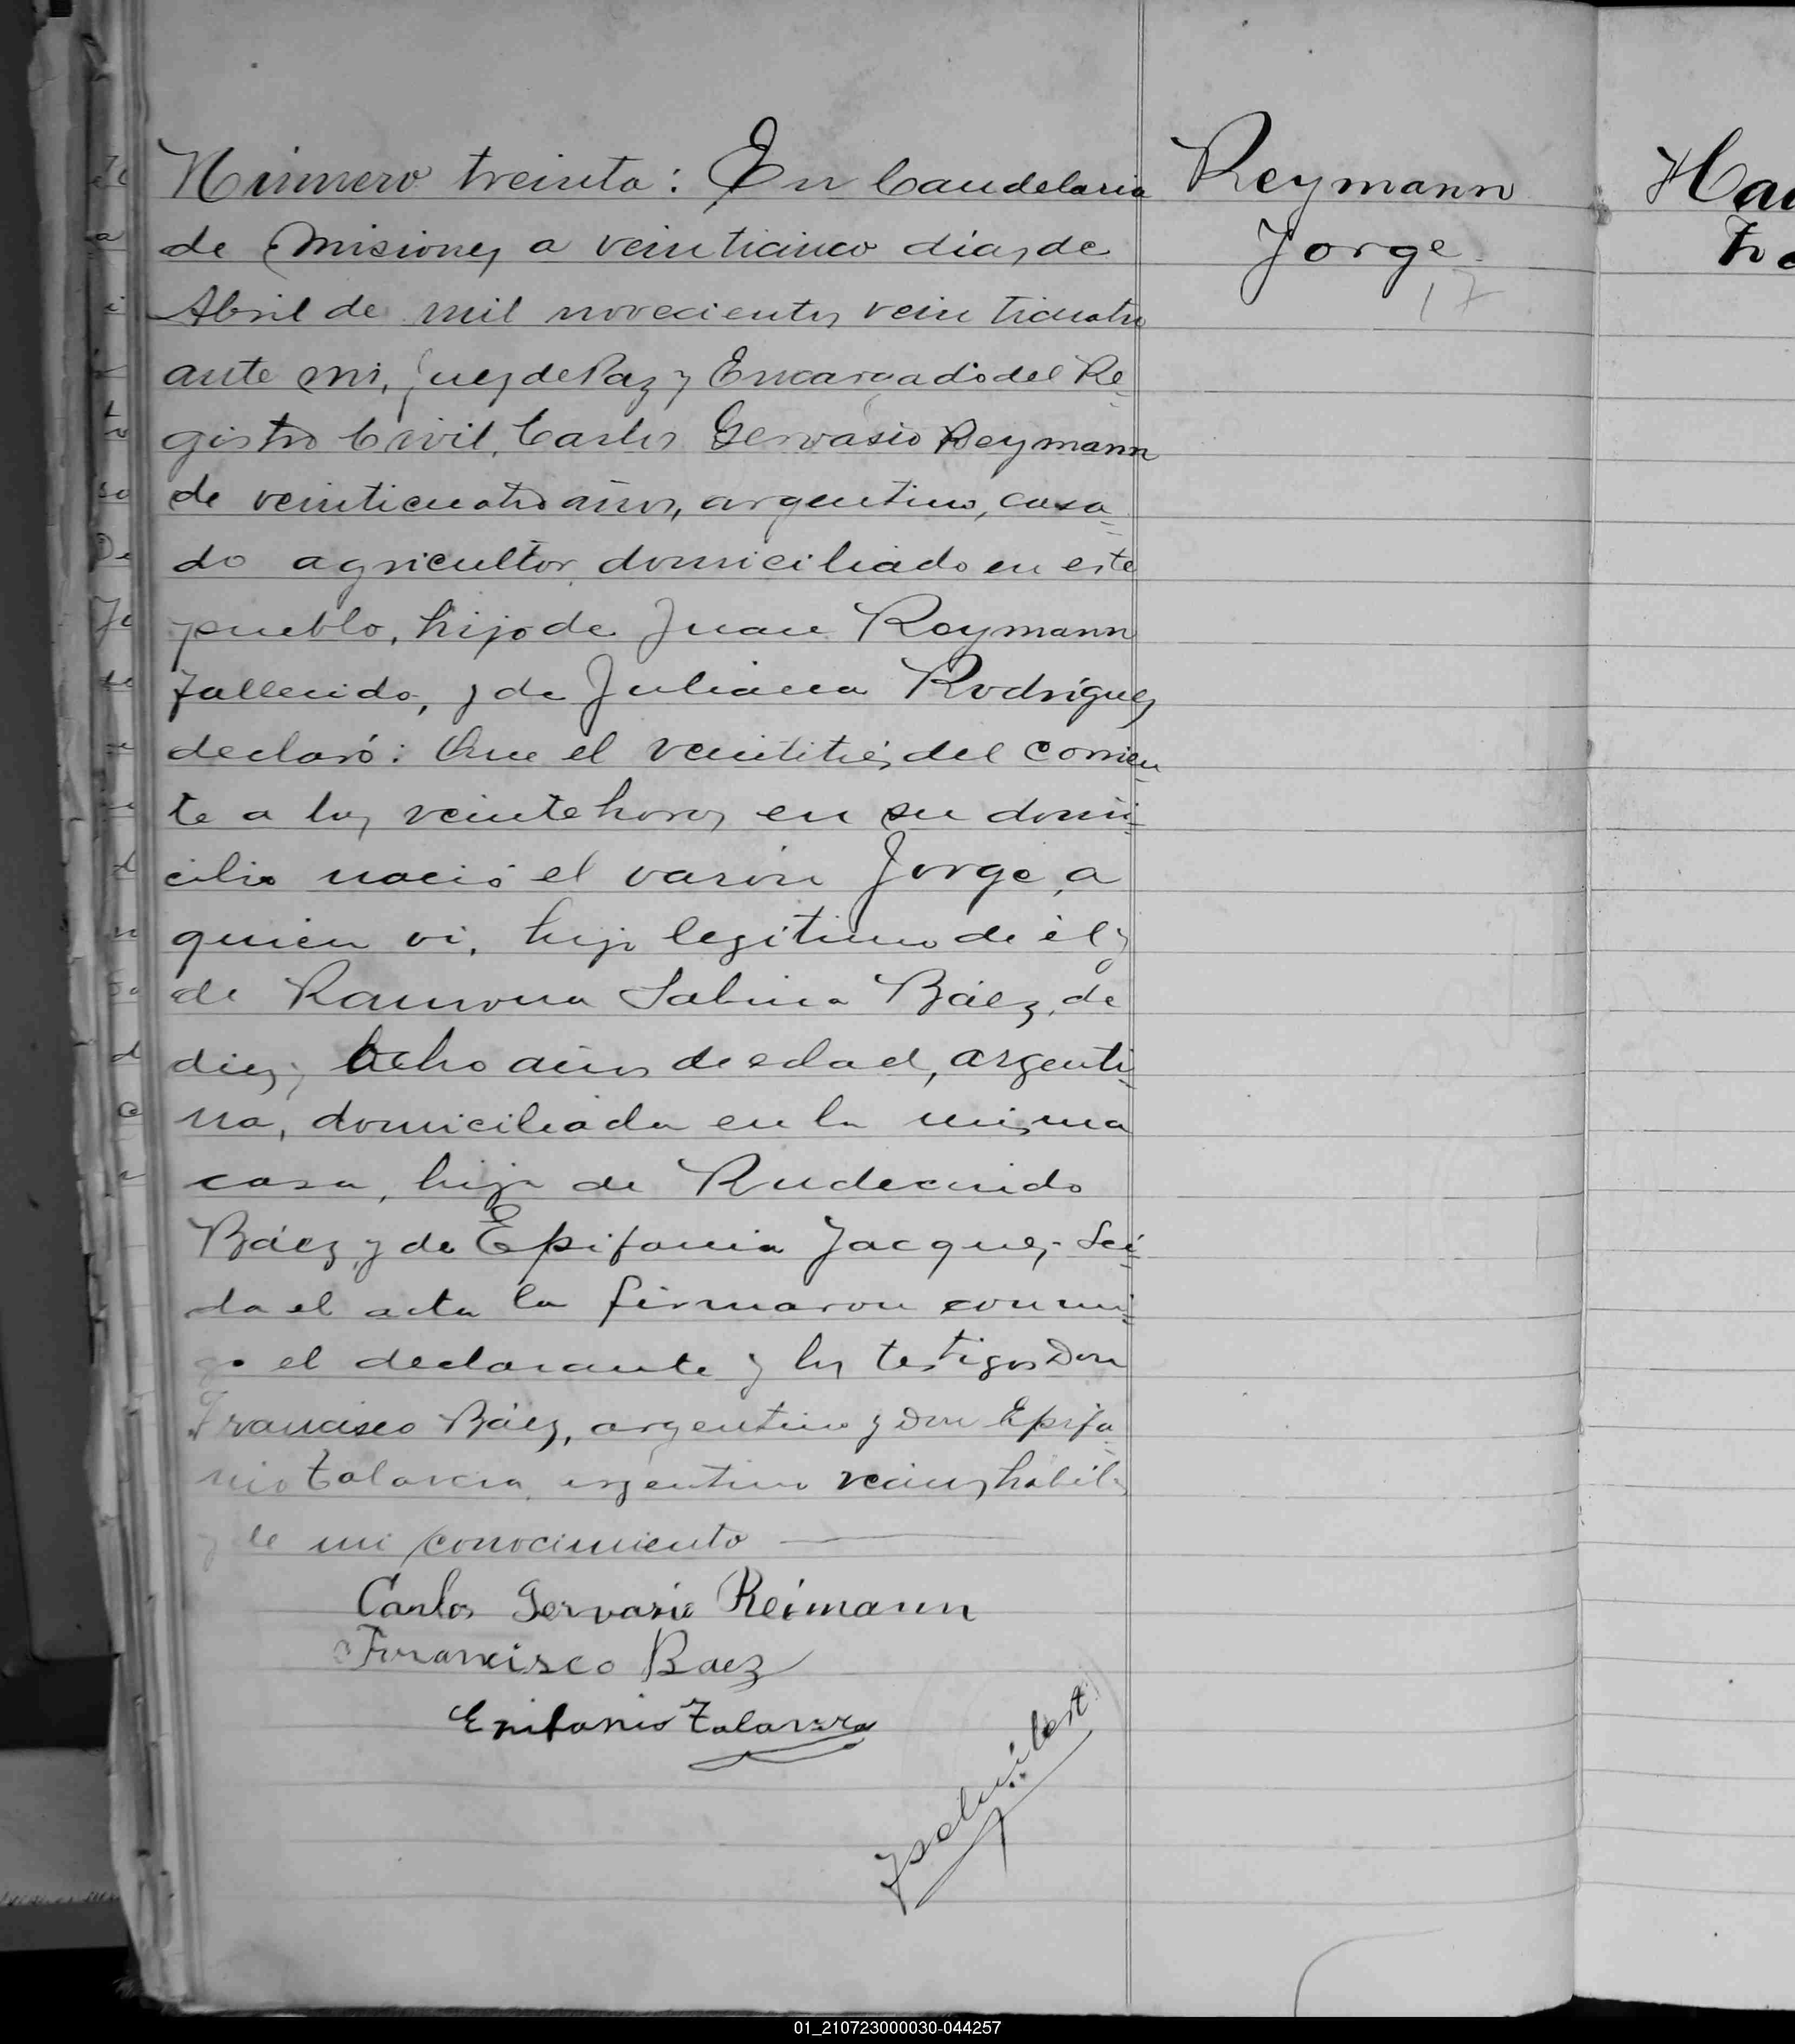 Número treinta: En Candelaria
de Misiones a veinticinco días de
Abril de mil novecientos veinticuatro
ante mi, Juez de Paz y Encargado del Re-
gistro Civil, Carlos Gervasio Reymann
de veinticuatro años, argentino, casa-
do agricultor domiciliado en este
pueblo, hijo de Juan Reymann
fallecido, y de Juliana Rodríguez
declaró: Que el veintitrés del corrien-
te a las veinte horas en su domi-
cilio nació el varón Jorge, a
quien vi, hijo legítimo de él y
de Ramona Sabina Báez, de
diez y ocho años de edad, argenti-
na, domiciliada en la misma
casa, hija de Rudecindo
Báez, y de Epifania Jacques. Leí-
da el acta la firmaron conmi-
go el declarante y los testigos Don
Francisco Báez, argentino y Don Epifa-
nio Talavera, argentino vecinos hábiles
y de mi conocimiento
Carlos Gervasio Reimann
Francisco Baez
Epifanio
Reymann
Jorge
17
01_210723000030-044257